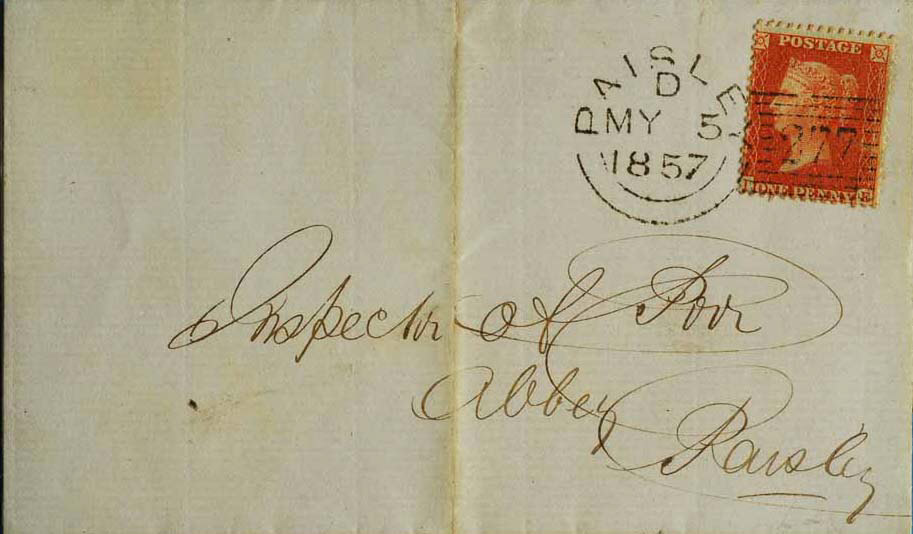 PAISLEY
D
MY 5
1857
POSTAGE
277
ONE PENNY
E
Inspector of Poor
Abbey
Paisley